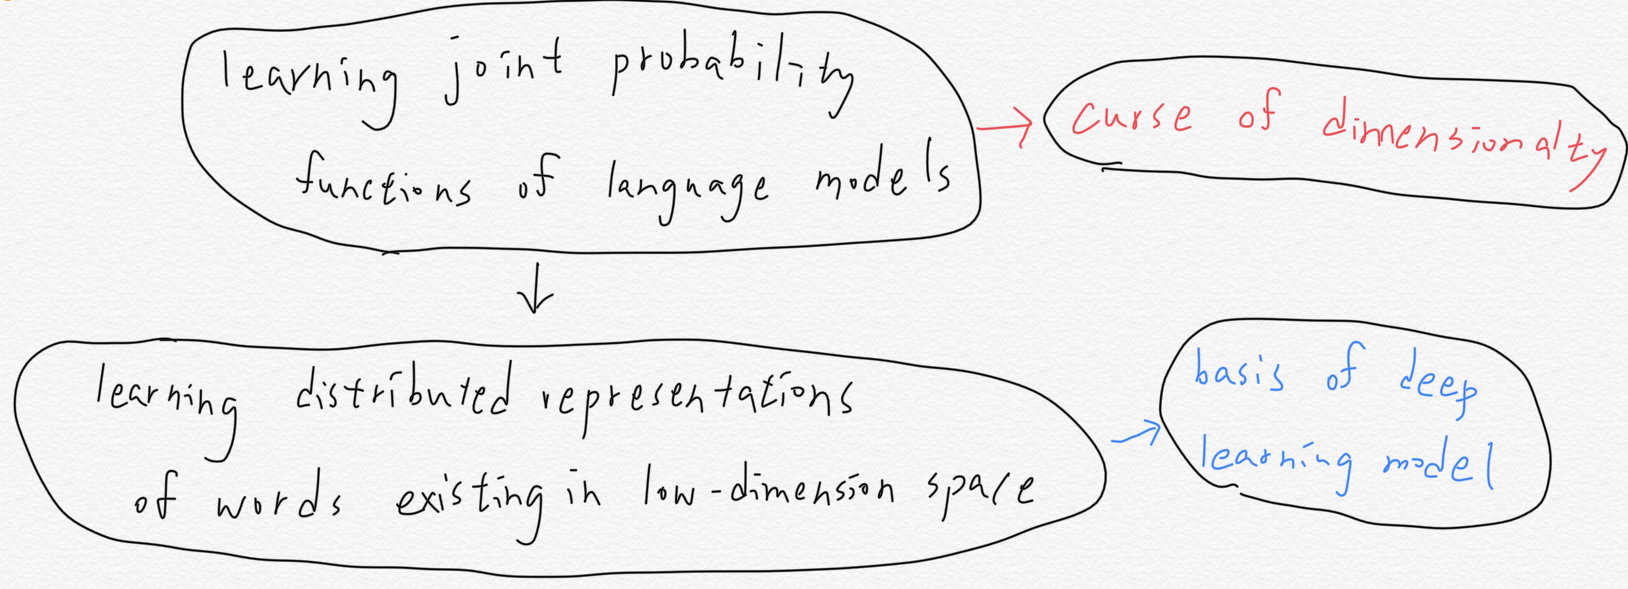 learning joint probability
functions of language models
curse of dimensionalty
learning distributed representations
of words existing in low-dimension space
basis of deep
learning model